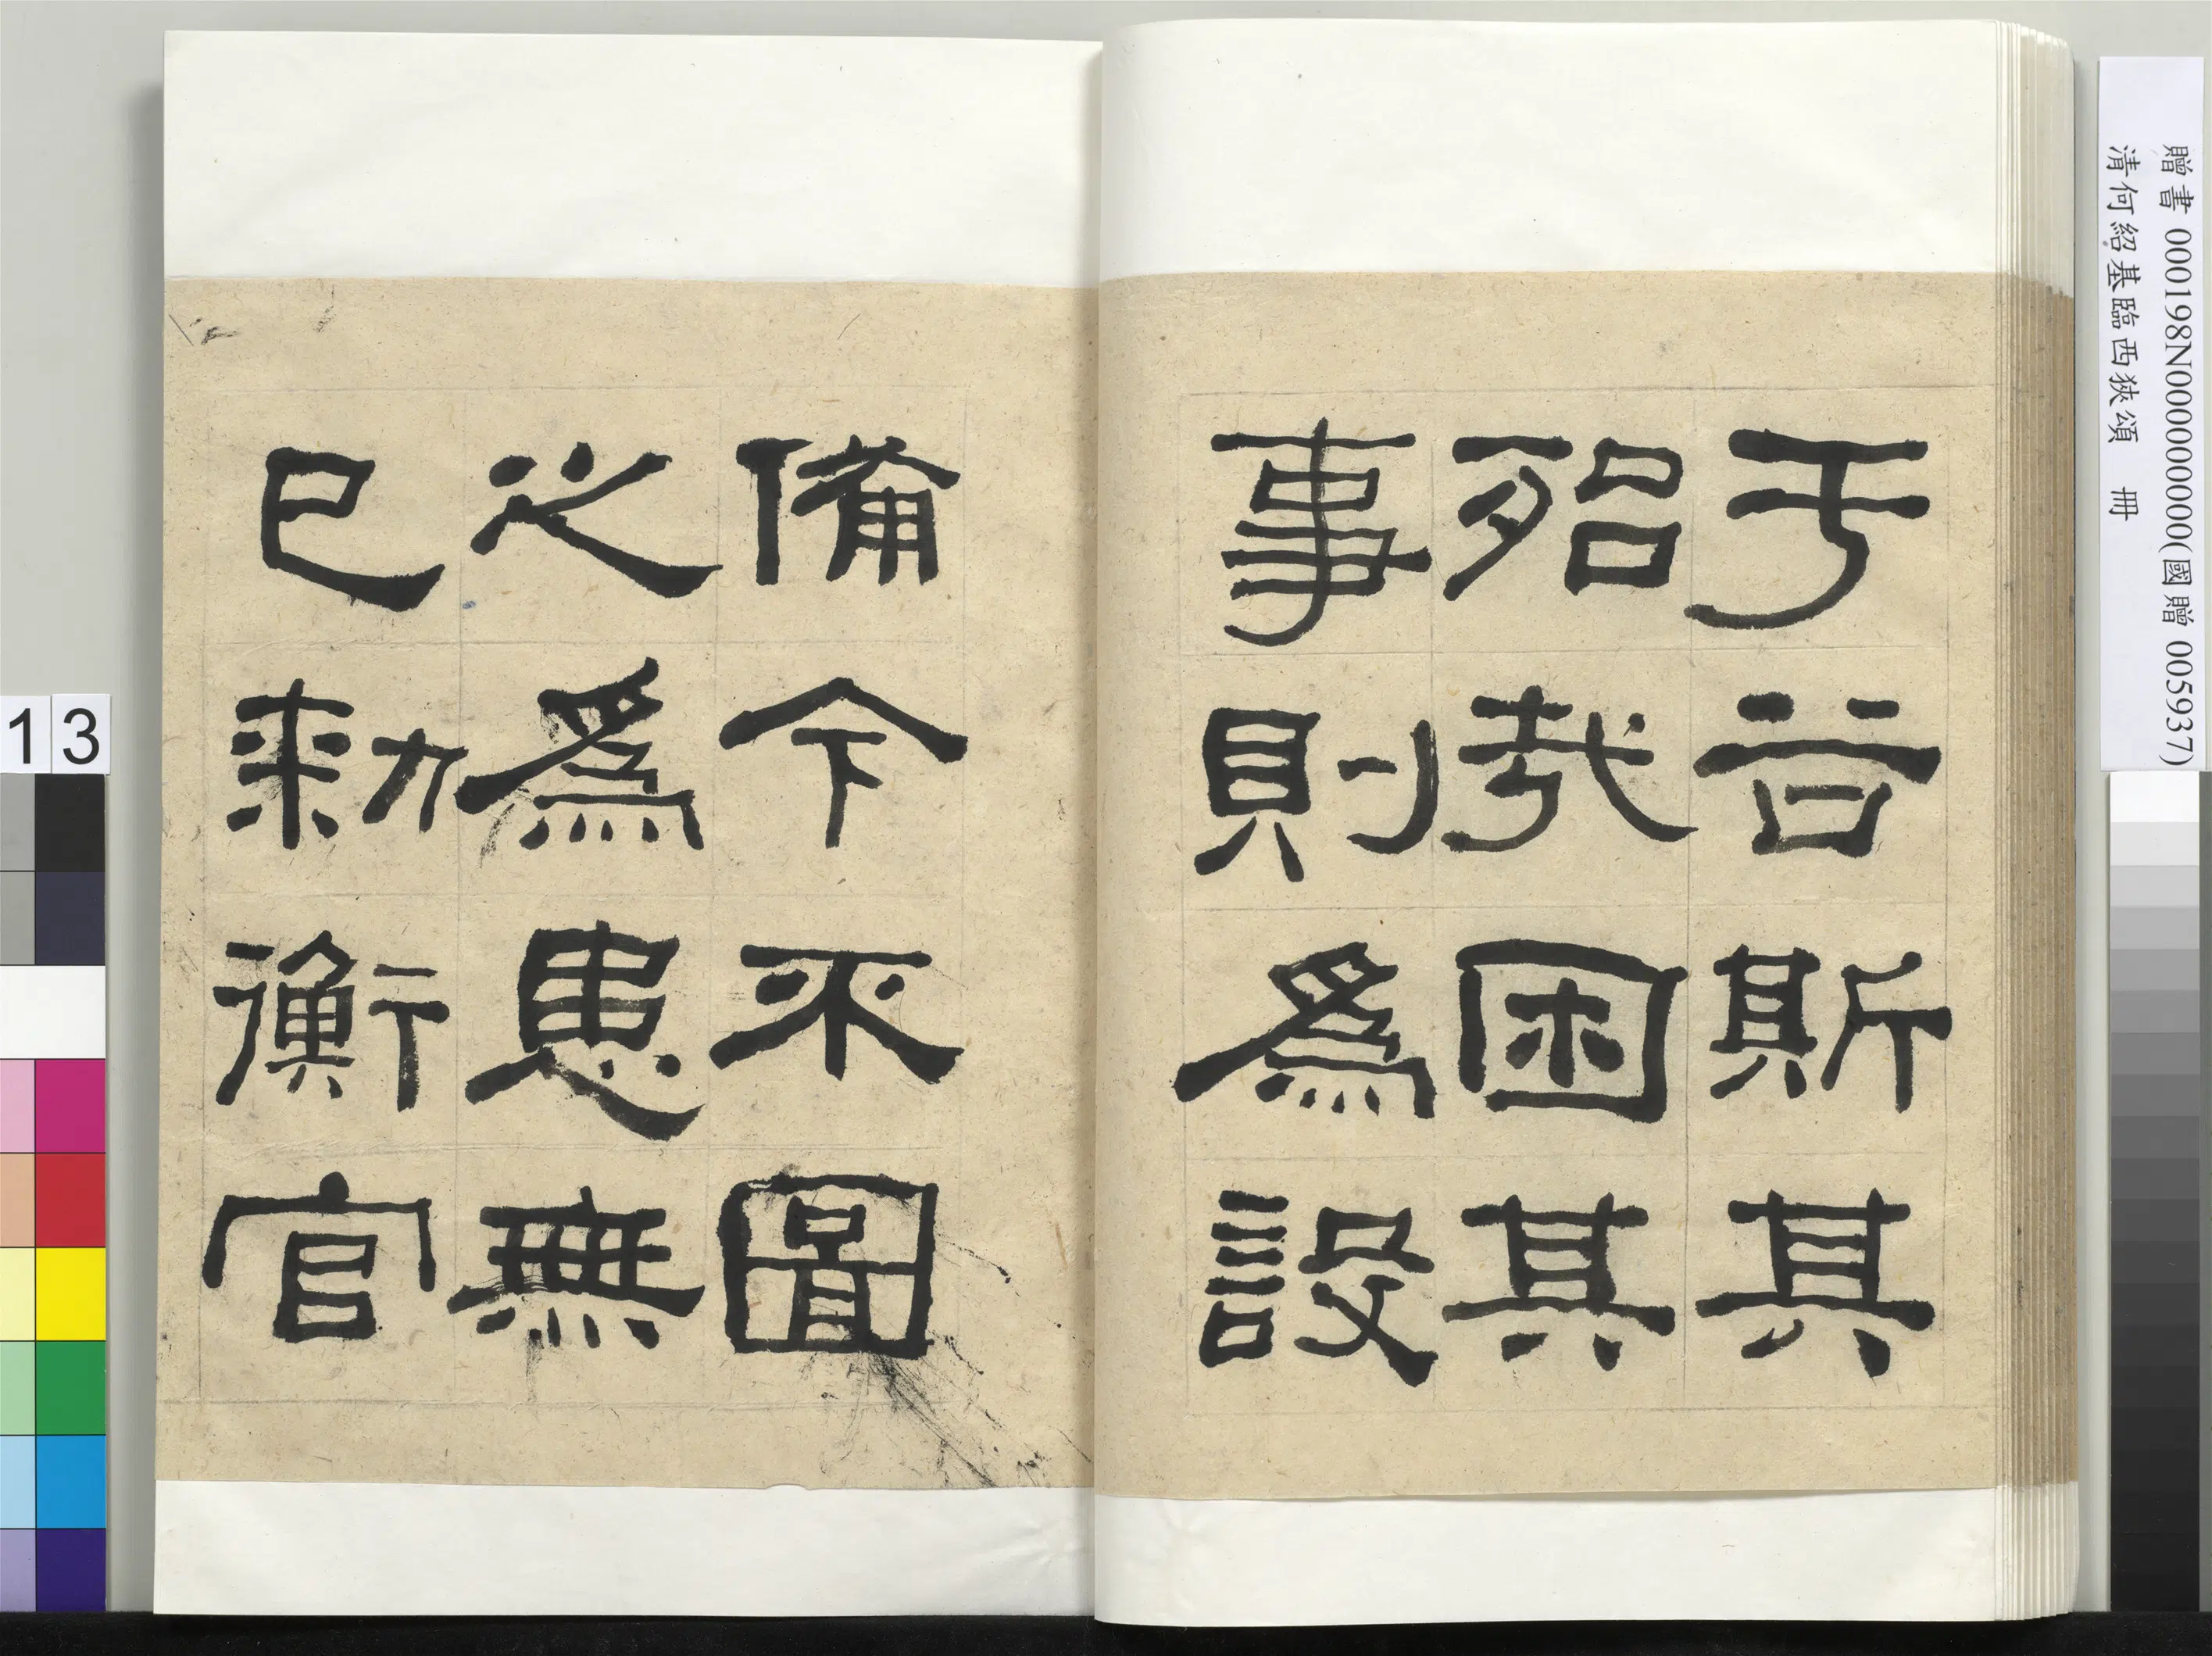 于谷斯其
殆哉困其
事則爲設
備今不圖
之爲患無
已勑衡官
13
贈書 000198N000000000(國贈 005937)
清何紹基臨西狹頌 冊